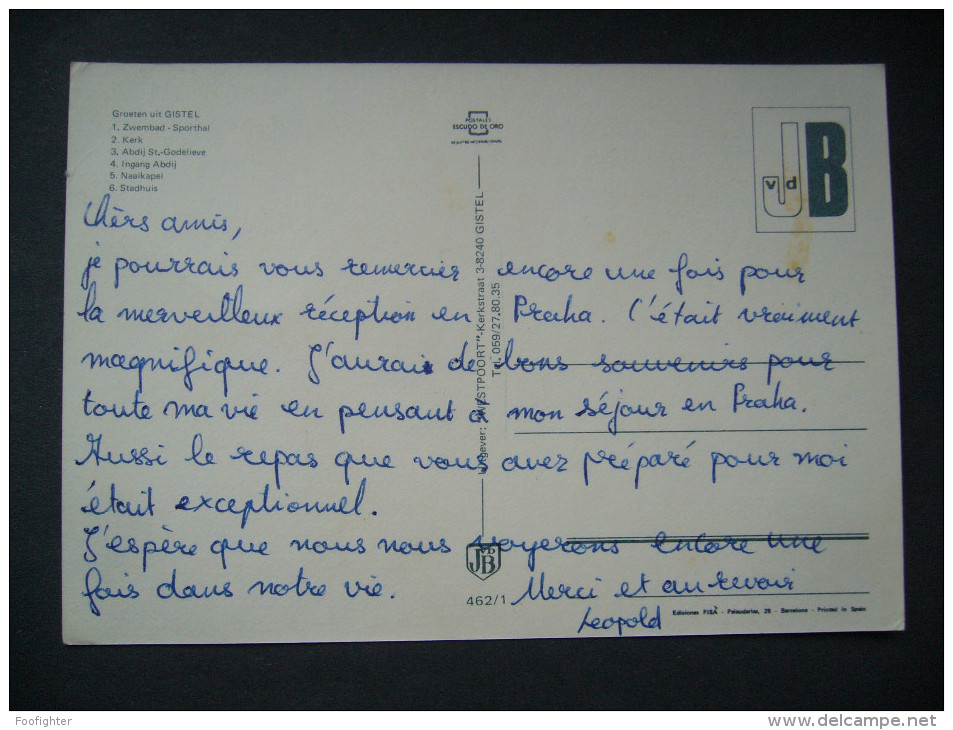 Groeten uit GISTEL
1. Zwembad - Sporthal
2. Kerk
3. Abdij St.-Godelieve
4. Ingang Abdij
5. Naaikapel
6. Stadhuis
POSTALES
ESCUDO DE ORO
J vd B
Chèrs amis,
je pourrais vous remercier encore une fois pour
la merveilleux réception en Praha. C'était vraiment
magnifique. J'aurai de bons souvenirs pour
toute ma vie en pensant à mon séjour en Praha.
Aussi le repas que vous avez préparé pour moi
était exceptionnel.
J'espère que nous nous voyerons encore une
fois dans notre vie. Merci et au revoir
Leopold
Uitgever: "WESTPOORT" - Kerkstraat 3-8240 GISTEL
Tel. 059/27.80.35
JVDB
462/1
Ediciones FISA - Palaudarias, 26 - Barcelona - Printed in Spain
Foofighter
www.delcampe.net